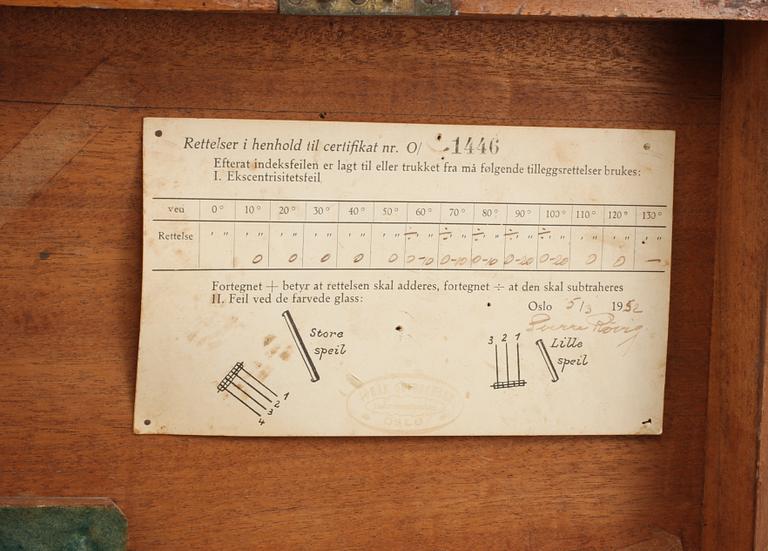 Rettelser i henhold til certifikat nr. O/ 1446
Efterat indeksfeilen er lagt til eller trukket fra må følgende tilleggsrettelser brukes:
I. Ekscentrisitetsfeil
ved 0° 10° 20° 30° 40° 50° 60° 70° 80° 90° 100° 110° 120° 130°
Rettelse ' " ' " ' " ' " ' " ' " ÷ ' " ÷ ' " ÷ ' " ÷ ' " ÷ ' " ' " ' " ' "
0 0 0 0 0 0-10 0-10 0-10 0-20 0-20 0 0 —
Fortegnet + betyr at rettelsen skal adderes, fortegnet ÷ at den skal subtraheres
II. Feil ved de farvede glass:
Oslo 5/3 1952
Store
speil
1
2
3
4
3 2 1
Lille
speil
OSLO